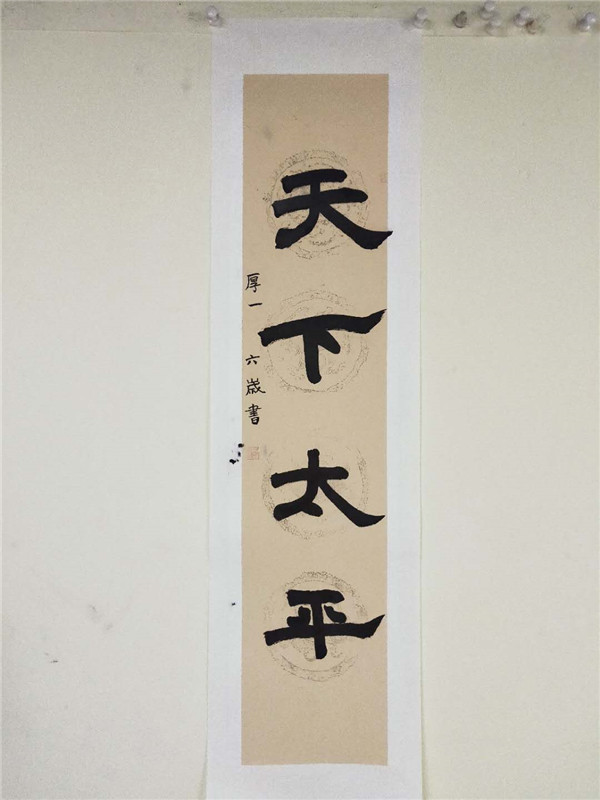 天下太平
厚一 六歲書